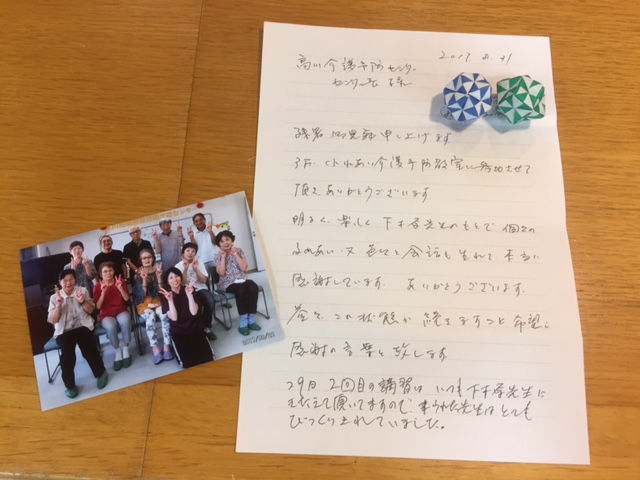 2017 8. 31
高川介護予防センター
センター長 様
残暑御見舞申し上げます
3F. くれあい介護予防教室に参加させて
頂き、ありがとうございます
明るく、楽しく 下村香先生のもとで 個々の
ふれあい 又 会話も 生れて 本当に
感謝しています. ありがとうございます.
益々、この状態が 続きますことを希望し
感謝の言葉と致します
29日 2回目の講習は いつも 先生に
頂いてますので、先生は とても
びっくりされていました。